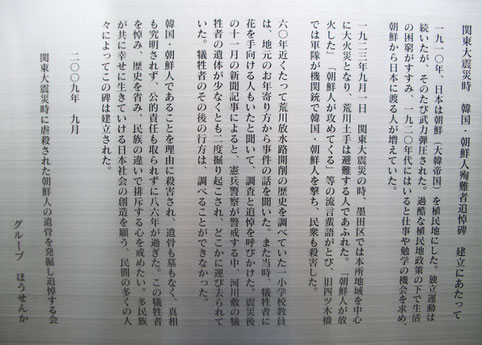 関東大震災時　韓国・朝鮮人殉難者追悼碑　建立にあたって
一九一〇年、日本は朝鮮（大韓帝国）を植民地にした。独立運動は
続いたが、そのたび武力弾圧された。過酷な植民地政策の下で生活
の困窮がすすみ、一九二〇年代にはいると仕事や勉学の機会を求め、
朝鮮から日本に渡る人が増えていた。
一九二三年九月一日　関東大震災の時、墨田区では本所地域を中心
に大火災となり、荒川土手は避難する人であふれた。「朝鮮人が放
火した」「朝鮮人が攻めてくる」等の流言蜚語がとび、旧四ツ木橋
では軍隊が機関銃で韓国・朝鮮人を撃ち、民衆も殺害した。
六〇年近くたって荒川放水路開削の歴史を調べていた一小学校教員
は、地元のお年寄り方から事件の話を聞いた。また当時、犠牲者に
花を手向ける人もいたと聞いて、調査と追悼を呼びかけた。震災後
の十一月の新聞記事によると、憲兵警察が警戒する中、河川敷の犠
牲者の遺体が少なくとも二度掘り起こされ、どこかに運び去られて
いた。犠牲者のその後の行方は、調べることができなかった。
韓国・朝鮮人であることを理由に殺害され、遺骨も墓もなく、真相
も究明されず、公的責任も取られずに八六年が過ぎた。この犠牲者
を悼み、歴史を省み、民族の違いで排斥する心を戒めたい。多民族
が共に幸せに生きていける日本社会の創造を願う、民間の多くの人
々によってこの碑は建立された。
二〇〇九年　九月
関東大震災時に虐殺された朝鮮人の遺骨を発掘し追悼する会
グループ　ほうせんか